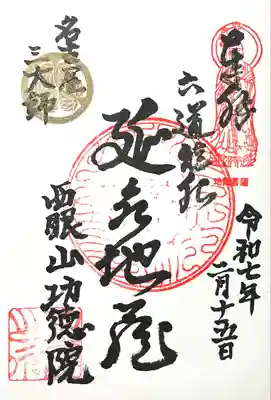 奉拝
令和七年
二月十五日
六道能化
延命地蔵
名古屋
三大師
四眼山功徳院